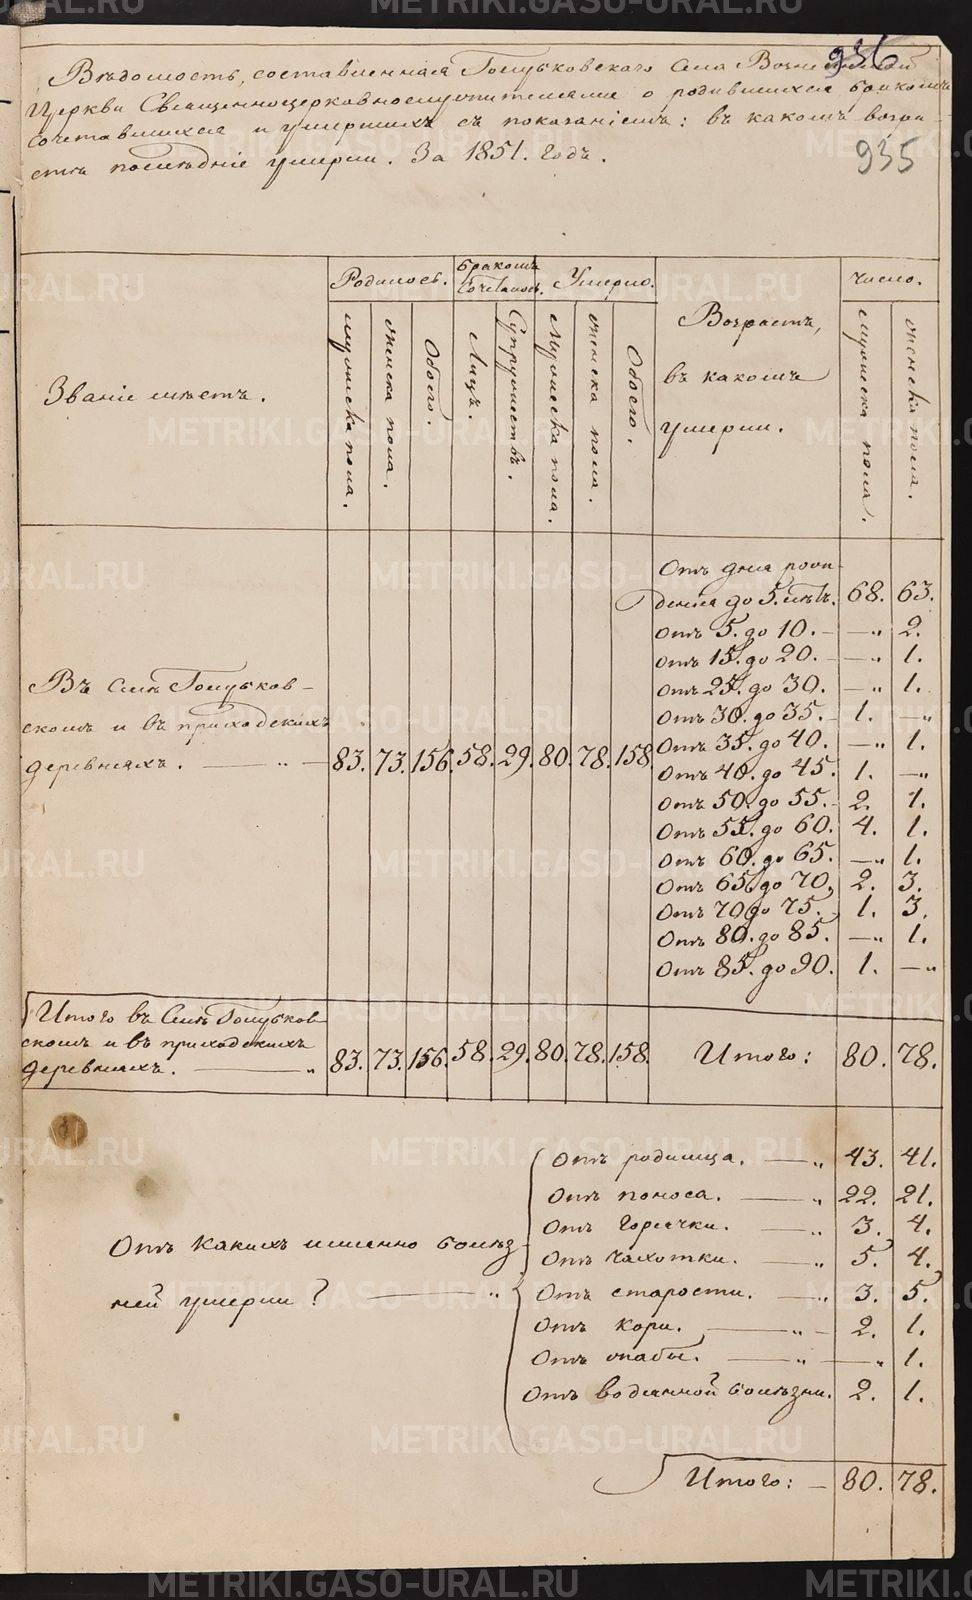 936
Вѣдомость, составленная Голубковскаго Села Вознесенской
Церкви Священноцерковнослужителями о родившихся бракомъ
сочетавшихся и умершихъ съ показаніемъ: въ какомъ возра-
стѣ послѣдніе умерли. За 1851. Годъ.
935
Званіе мѣстъ.
Родилось. Бракомъ Сочеталось. Умерло. Возрастъ, въ какомъ умерли. Число.
мужеска пола. женска пола. Обоего. Лицъ. Супружествъ. Мужеска пола. женска пола. Обоего. мужеска пола. женска пола.
Отъ дня рож-
денія до 5. лѣтъ. 68. 63.
Отъ 5. до 10. — „ 2.
Отъ 15. до 20. — „ 1.
Отъ 25. до 30. — „ 1.
Отъ 30. до 35. 1. — „
Отъ 35. до 40. — „ 1.
Отъ 40. до 45. 1. — „
Отъ 50. до 55. 2. 1.
Отъ 55. до 60. 4. 1.
Отъ 60. до 65. — „ 1.
Отъ 65. до 70. 2. 3.
Отъ 70 до 75. 1. 3.
Отъ 80. до 85. — „ 1.
Отъ 85. до 90. 1. — „
Въ Селѣ Голубков-
скомъ и въ приходскихъ
деревняхъ. — „ — 83. 73. 156. 58. 29. 80. 78. 158.
Итого въ Селѣ Голубков-
скомъ и въ приходскихъ
деревняхъ. — „ 83. 73. 156. 58. 29. 80. 78. 158. Итого: 80. 78.
Отъ какихъ именно болѣз-
ней умерли? — „
Отъ родимца. — „ 43. 41.
Отъ поноса. — „ 22. 21.
Отъ горячки. — „ 3. 4.
Отъ чахотки. — „ 5. 4.
Отъ старости. — „ 3. 5.
Отъ кори. — „ — 2. 1.
Отъ жабы. — „ — „ 1.
Отъ водянной болѣзни. 2. 1.
Итого: — 80. 78.
METRIKI.GASO-URAL.RU